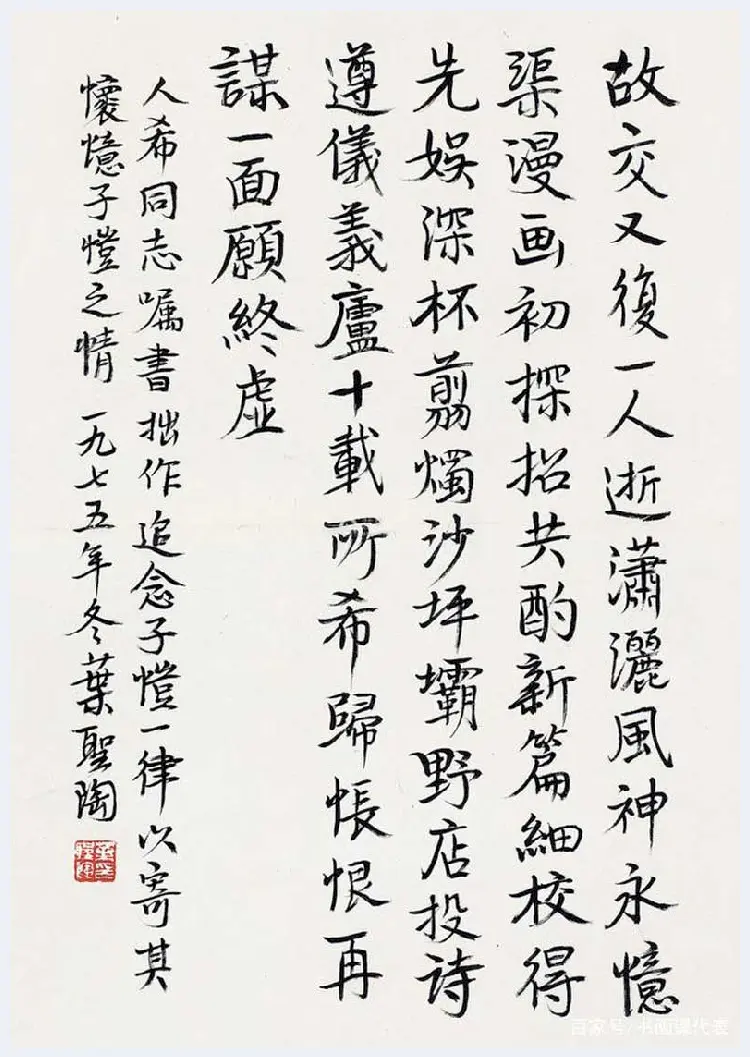 故交又復一人逝瀟灑風神永憶
渠漫画初探招共酌新篇細校得
先娛深杯翦燭沙坪壩野店投詩
遵儀義廬十載所希歸悵恨再
謀一面願終虛
人希同志嘱書拙作追念子愷一律以寄其
懷憶子愷之情 一九七五年冬葉聖陶
百家号/书画课代表